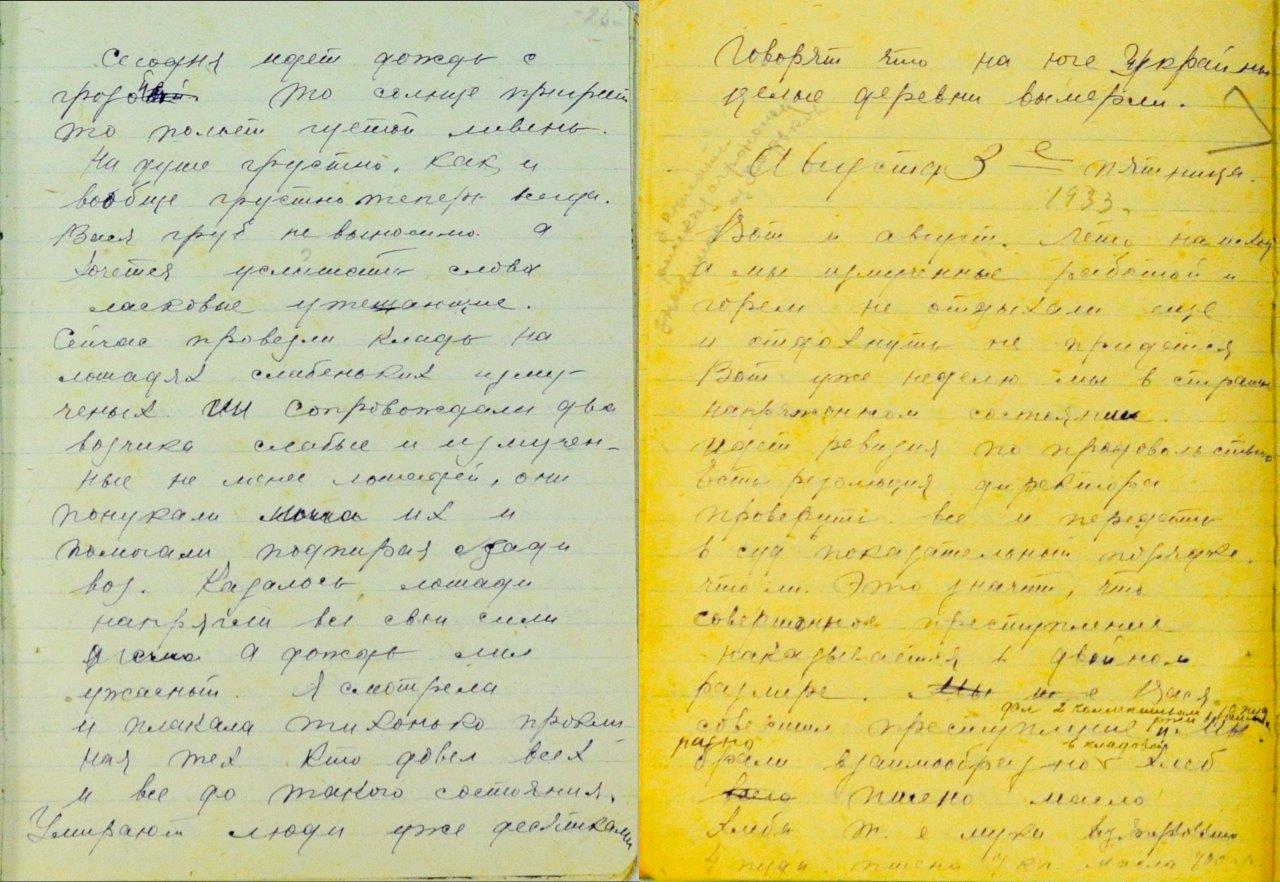 -26-
Сегодня идет дождь с
грозой то солнце
то польет густой ливень.
На душе грустно, как и
вообще грустно теперь везде.
Вася груб невыносимо. А
хочется услышать слова
ласковые утешающие.
Сейчас провезли кладь на
лошадях слабеньких изму-
ченых. Их сопровождали два
возчика слабые и измучен-
ные не менее лошадей, они
понукали их и
помогали подпирая сзади
воз. Казалось лошади
напрягли все свои силы
а дождь лил
ужасный. Я смотрела
и плакала тихонько прокли
ная тех кто довел всех
и все до такого состояния.
Умирают люди уже десятками
Говорят что на юге Украины
целые деревни вымерли.
Августа 3е пятница.
1933.
Вот и август. Лето на исход
а мы измученные работой и
горем не отдыхали еще
и отдохнуть не придется
Вот уже неделю мы в страшн
напряженном состоянии.
Идет ревизия по продовольствию
Есть резолюция директора
проверить все и передать
в суд в показательном порядке.
что ли. Это значит, что
совершенное преступление
наказывается в двойном
размере. Мы же Вася
дал 2 коллективам ржи
совершил преступление и Мы
в кладовой
брали взаимообразно хлеб
пшено масло
Хлеба т. е муки
4 пуда пшена кг масла